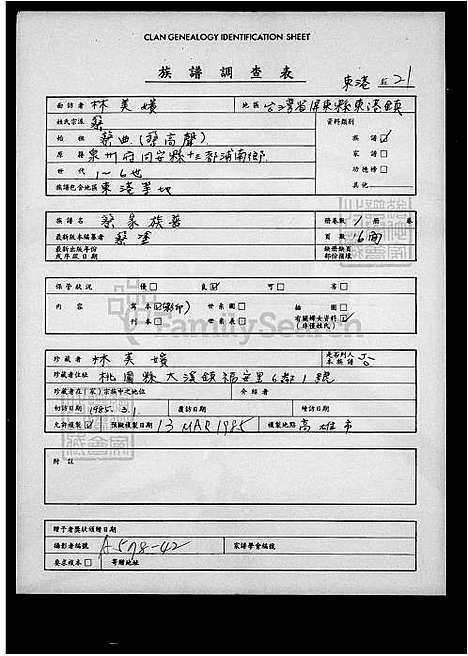 CLAN GENEALOGY IDENTIFICATION SHEET
族譜調查表
東港 21
面訪者 林美媛 地區 台灣省屏東縣東港鎮
姓氏宗派 蔡 資料類別
始祖 蔡典(蔡高聲) 族譜
原籍 泉州府同安縣十三都浦南鄉 家譜
世代 1~6世 功德榜
族譜包含地區 東港等地 其他
族譜名 蔡家族譜 冊卷數 1冊 卷
最新版本編纂者 蔡塗 頁數 16面
最新出版年份或序跋日期 缺冊缺頁部份損壞
保管狀況 優 良 可 否
內容 寫本(影印) 世系圖 插圖
刊本 世系表 有關婦女資料(非僅姓氏)
FamilySearch
珍藏者 林美媛 是否列入本族譜 否
珍藏者住址 桃園縣大溪鎮福安里6鄰1號
珍藏者在(家)宗族中之地位 介紹者
初訪日期 1985.3.1 覆訪日期 續訪日期
允許複製 預擬複製日期 13 MAR 1985 複製地點 高雄市
附註
贈予者獎狀頒贈日期
攝影者編號 A578-42 宗譜學會編號
要求複本 寄贈地址